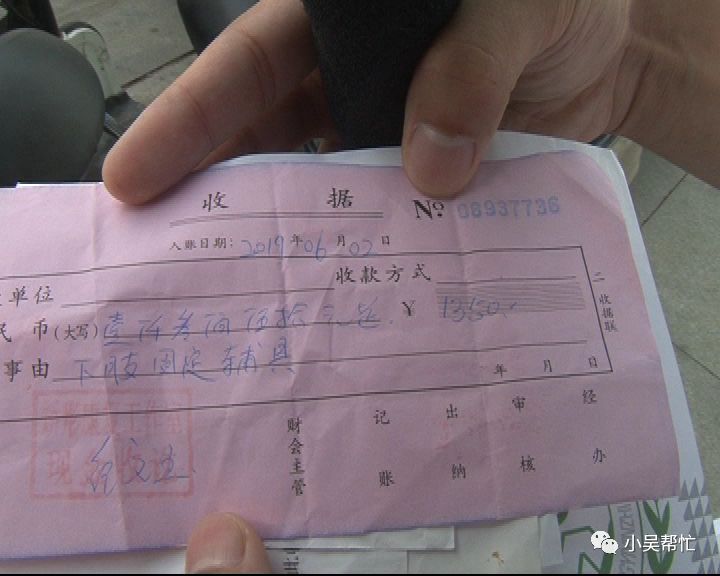 收 据 № 08937736
入账日期: 2019年06月02日
单位 收款方式
民 币(大写) 壹仟叁佰伍拾元整 ¥ 1350.-
事由 下肢固定辅具
年 月 日
二 收据联
财会主管 记账 出纳 审核 经办
现
小吴帮忙